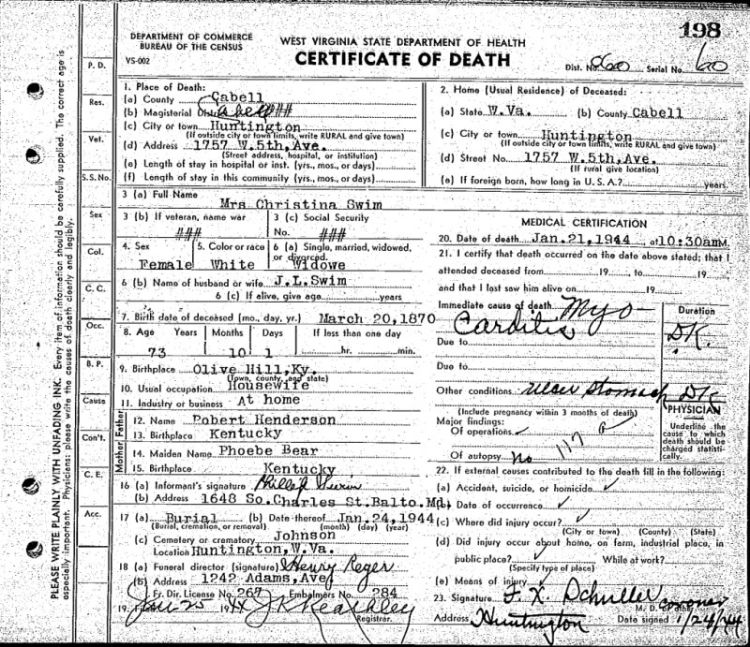 198
DEPARTMENT OF COMMERCE
BUREAU OF THE CENSUS
VS-002
WEST VIRGINIA STATE DEPARTMENT OF HEALTH
CERTIFICATE OF DEATH
Dist. No. 060 Serial No. 60
PLEASE WRITE PLAINLY WITH UNFADING INK. Every item of information should be carefully supplied. The correct age is
especially important. Physicians: please write the causes of death clearly and legibly.
P. D.
Res.
Vet.
S.S.No.
Sex
Col.
C. C.
Occ.
B. P.
Cause
Con't.
C. E.
Acc.
1. Place of Death:
(a) County Cabell
(b) Magisterial Dist. ###
(c) City or town Huntington
(If outside city or town limits, write RURAL and give town)
(d) Address 1757 W.5th,Ave.
(Street address, hospital, or institution)
(e) Length of stay in hospital or inst. (yrs., mos., or days)
(f) Length of stay in this community (yrs., mos., or days)
2. Home (Usual Residence) of Deceased:
(a) State W.Va. (b) County Cabell
(c) City or town Huntington
(If outside city or town limits, write RURAL and give town)
(d) Street No. 1757 W.5th,Ave.
(If rural give location)
(e) If foreign born, how long in U.S.A.? years.
3 (a) Full Name
Mrs Christina Swim
3 (b) If veteran, name war
###
3 (c) Social Security
No. ###
4. Sex
Female
5. Color or race
White
6 (a) Single, married, widowed,
or divorced.
Widowe
6 (b) Name of husband or wife J.L.Swim
6 (c) If alive, give age years
7. Birth date of deceased (mo., day, yr.) March 20,1870
8. Age Years Months Days If less than one day
73 10 1 hr. min.
9. Birthplace Olive Hill,Ky.
(Town, county, and state)
10. Usual occupation Housewife
11. Industry or business At home
Father
12. Name Robert Henderson
13. Birthplace Kentucky
Mother
14. Maiden Name Phoebe Bear
15. Birthplace Kentucky
16 (a) Informant's signature Phillip Swim
(b) Address 1648 So.Charles St.Balto.Md.
17 (a) Burial (b) Date thereof Jan.24,1944
(Burial, cremation, or removal) (month) (day) (year)
(c) Cemetery or crematory Johnson
Location Huntington,W.Va.
18 (a) Funeral director (signature) Henry Reger
(b) Address 1242 Adams,Ave
Fr. Dir. License No. 267 Embalmers No. 284
19. Jan 25 44 J K Keathley
Registrar.
MEDICAL CERTIFICATION
20. Date of death Jan.21,1944, at 10:30am M.
21. I certify that death occurred on the date above stated; that I
attended deceased from 19 to 19
and that I last saw him alive on 19
Immediate cause of death Myo-
Carditis
Duration
DK.
Due to
Due to
Other conditions ulcer stomach DK
(Include pregnancy within 3 months of death)
Major findings:
Of operations
Of autopsy no
117
PHYSICIAN
Underline the
cause to which
death should be
charged statisti-
cally.
22. If external causes contributed to the death fill in the following:
(a) Accident, suicide, or homicide
(b) Date of occurrence
(c) Where did injury occur?
(City or town) (County) (State)
(d) Did injury occur about home, on farm, industrial place, in
public place? While at work?
(Specify type of place)
(e) Means of injury
23. Signature F. X. Schuller coroner
M. D.
Address Huntington Date signed 1/24/44